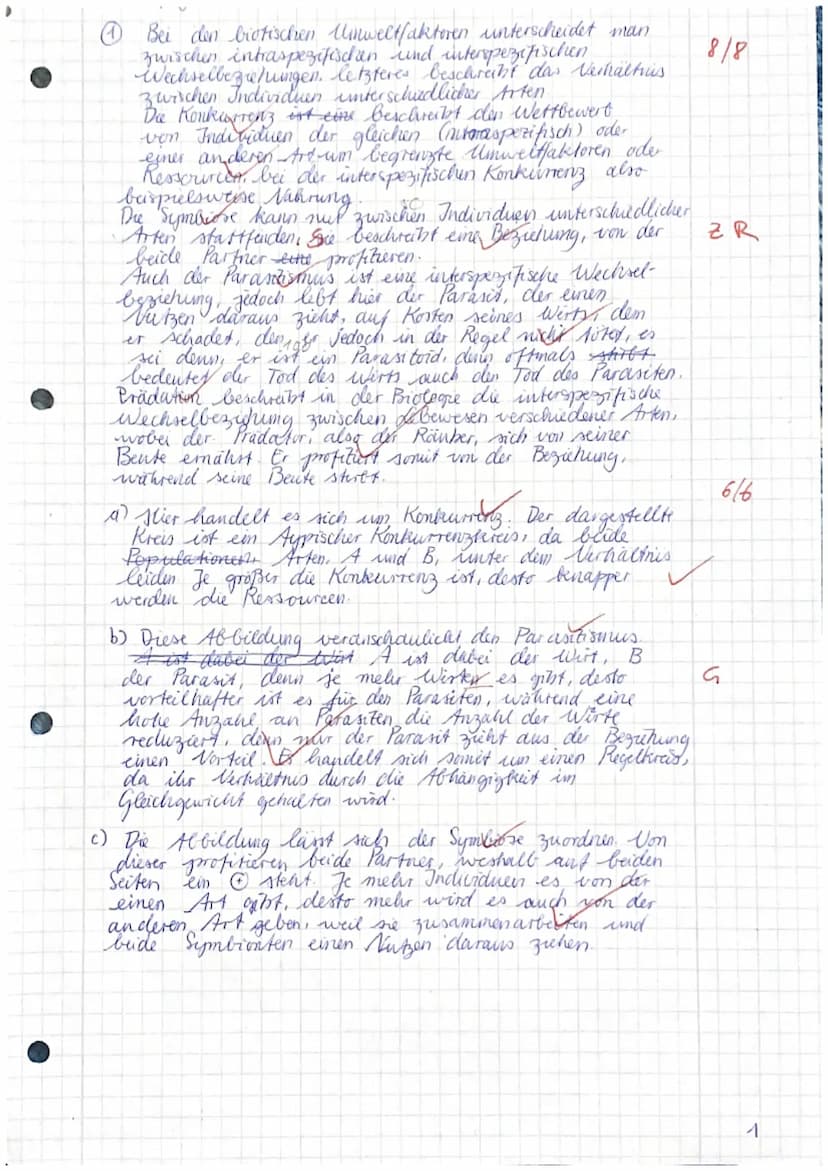 ① Bei den biotischen Umweltfaktoren unterscheidet man
8/8
zwischen intraspezifischen und interspezifischen
Wechselbeziehungen, letzteres beschreibt das Verhältnis
zwischen Individuen unterschiedlicher Arten.
Die Konkurrenz ist eine beschreibt den Wettbewerb
von Individuen der gleichen (intraspezifisch) oder
einer anderen Art um begrenzte Umweltfaktoren oder
Ressourcen, bei der interspezifischen Konkurrenz also
beispielsweise Nahrung.
Die Symbiose kann nur zwischen Individuen unterschiedlicher
Arten stattfinden. Sie beschreibt eine Beziehung, von der
Z R
beide Partner eine profitieren.
Auch der Parasitismus ist eine interspezifische Wechsel-
beziehung, jedoch lebt hier der Parasit, der einen
Nutzen daraus zieht, auf Kosten seines Wirts, dem
er schadet, den er jedoch in der Regel nicht tötet, es
sei denn, er ist ein Parasitoid, denn oftmals stirbt
bedeutet der Tod des Wirts auch den Tod des Parasiten.
Prädation beschreibt in der Biologie die interspezifische
Wechselbeziehung zwischen Lebewesen verschiedener Arten,
wobei der Prädator, also der Räuber, sich von seiner
Beute ernährt. Er profitiert somit von der Beziehung,
während seine Beute stirbt.
6/6
a) Hier handelt es sich um Konkurrenz. Der dargestellte
Kreis ist ein typischer Konkurrenzkreis, da beide
Populationen Arten, A und B, unter dem Verhältnis
leiden. Je größer die Konkurrenz ist, desto knapper
werden die Ressourcen.
b) Diese Abbildung veranschaulicht den Parasitismus.
A ist dabei der Wirt A ist dabei der Wirt, B
der Parasit, denn je mehr Wirten es gibt, desto
G
vorteilhafter ist es für den Parasiten, während eine
hohe Anzahl an Parasiten die Anzahl der Wirte
reduziert, denn nur der Parasit zieht aus der Beziehung
einen Vorteil. Es handelt sich somit um einen Regelkreis,
da ihr Verhältnis durch die Abhängigkeit im
Gleichgewicht gehalten wird.
c) Die Abbildung lässt sich der Symbiose zuordnen. Von
dieser profitieren beide Partner, weshalb auf beiden
Seiten ein ⊕ steht. Je mehr Individuen es von der
einen Art gibt, desto mehr wird es auch von der
anderen Art geben, weil sie zusammenarbeiten und
beide Symbionten einen Nutzen daraus ziehen.
1